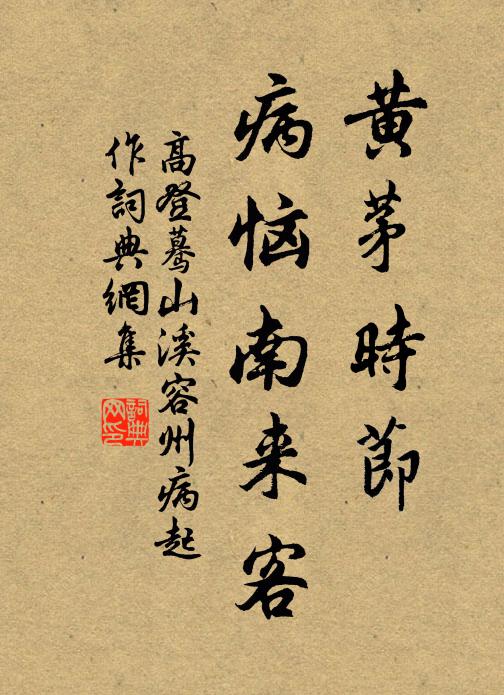 黄茅時節
病恼南来客
高登蓦山溪容州病起
作詞典網集
詞典
网印